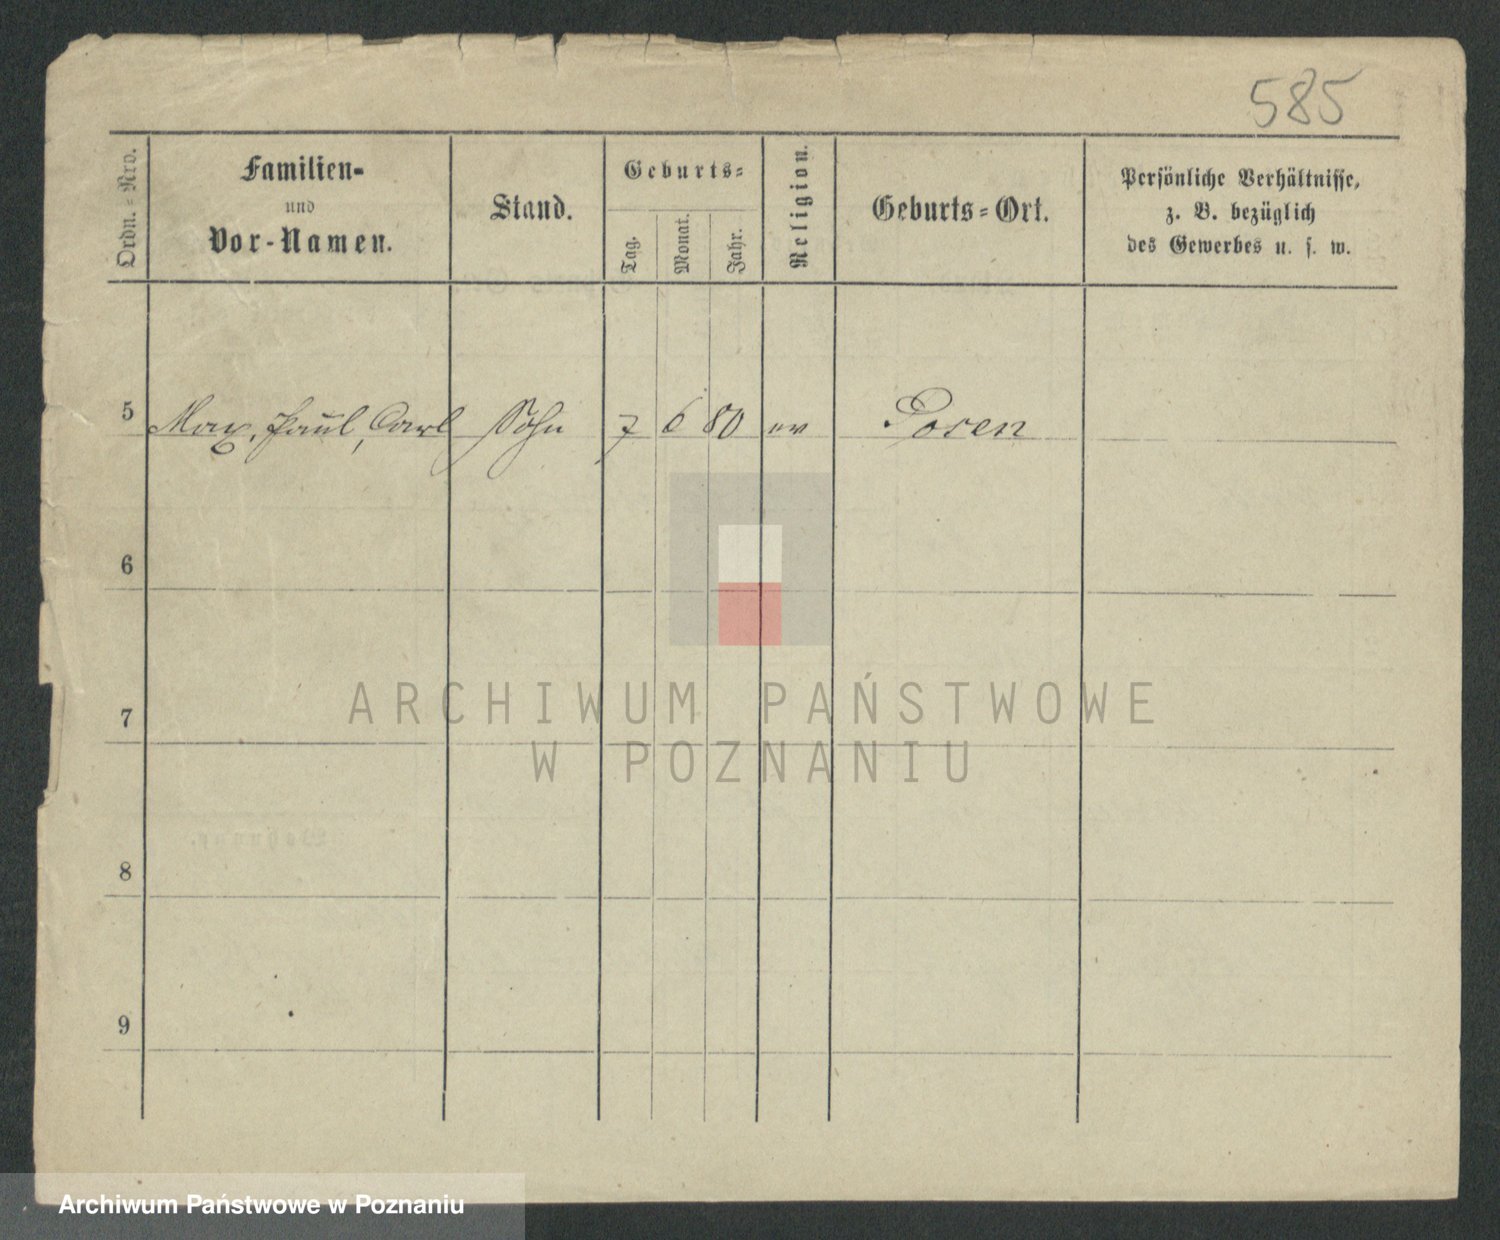 585
Ordn.-Nro.
Familien-
und
Vor-Namen.
Stand.
Geburts-
Tag.
Monat.
Jahr.
Religion.
Geburts-Ort.
Persönliche Verhältnisse,
z. B. bezüglich
des Gewerbes u. s. w.
5 Max, Paul, Carl Sohn 7 6 80 ev Posen
6
7
8
9
ARCHIWUM PAŃSTWOWE
W POZNANIU
Archiwum Państwowe w Poznaniu